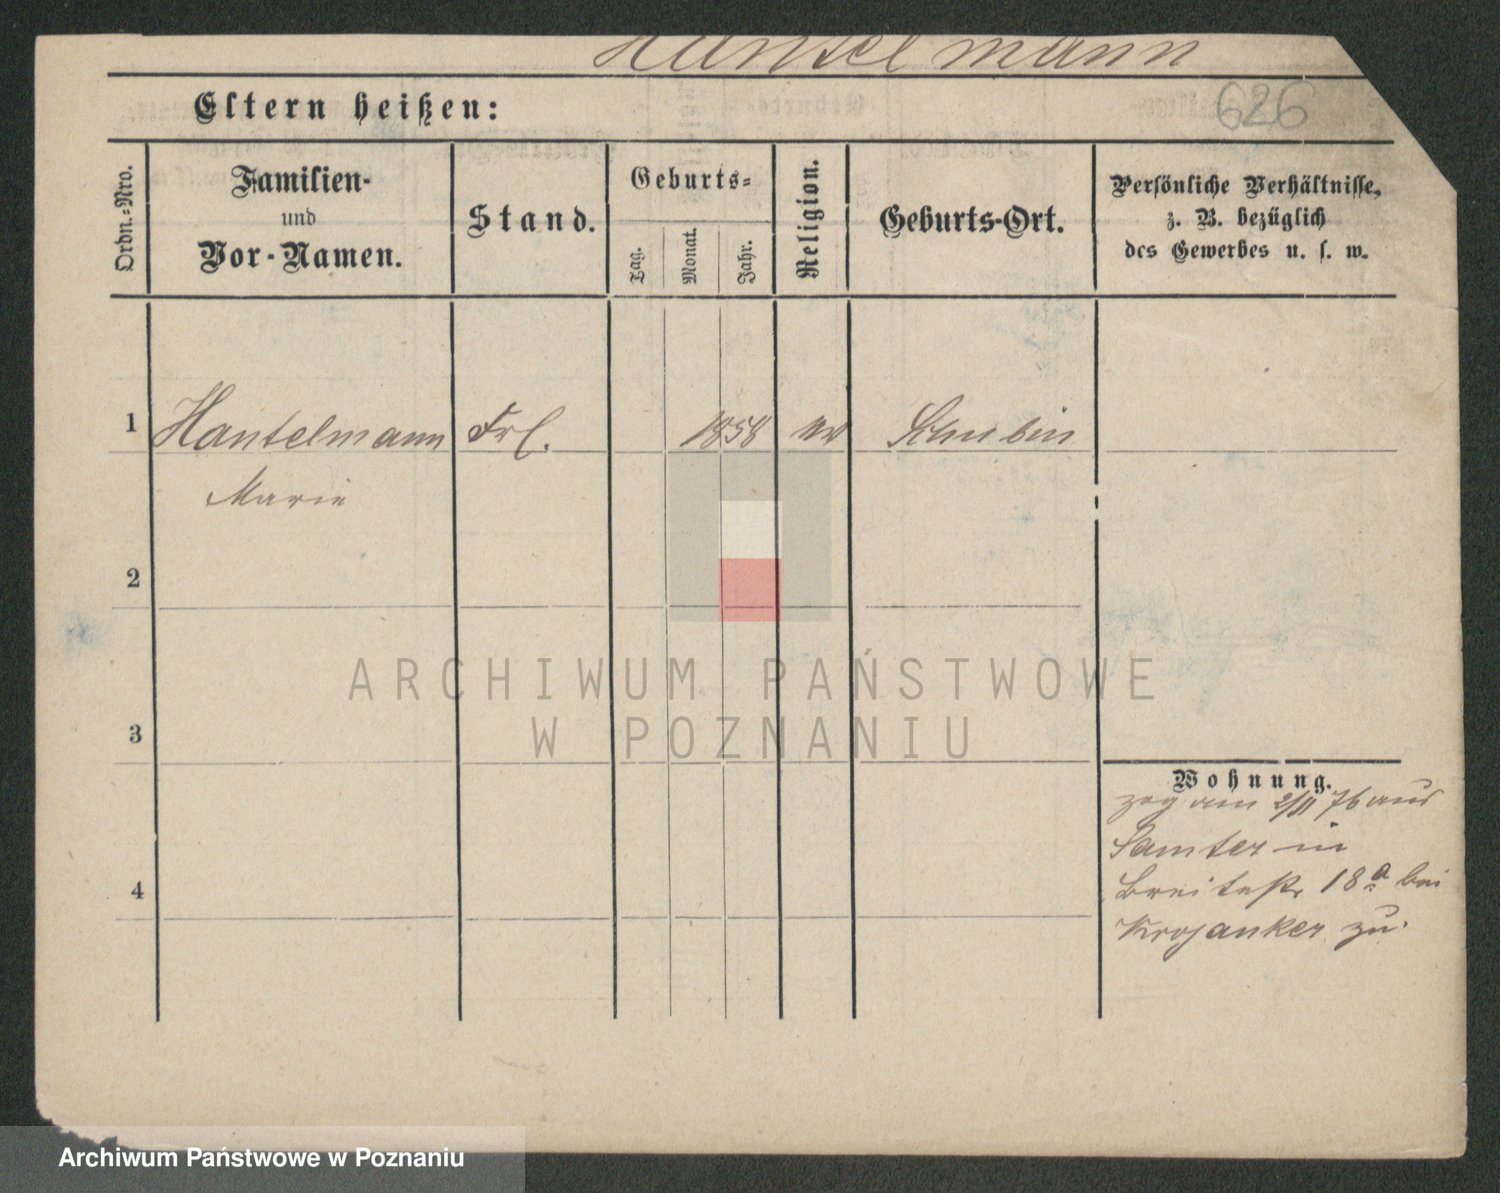 Hantelmann
626
Eltern heißen:
Ordn.=Nro.
Familien-
und
Vor-Namen.
Stand.
Geburts=
Tag.
Monat.
Jahr.
Religion.
Geburts-Ort.
Persönliche Verhältnisse,
z. B. bezüglich
des Gewerbes u. s. w.
1
Hantelmann
Frl.
1858
ev
Schubin
Marie
2
3
4
Wohnung.
zog am 2/11 76 aus
Samter in
Breitestr 18a bei
Krojanker zu.
ARCHIWUM PAŃSTWOWE
W POZNANIU
Archiwum Państwowe w Poznaniu